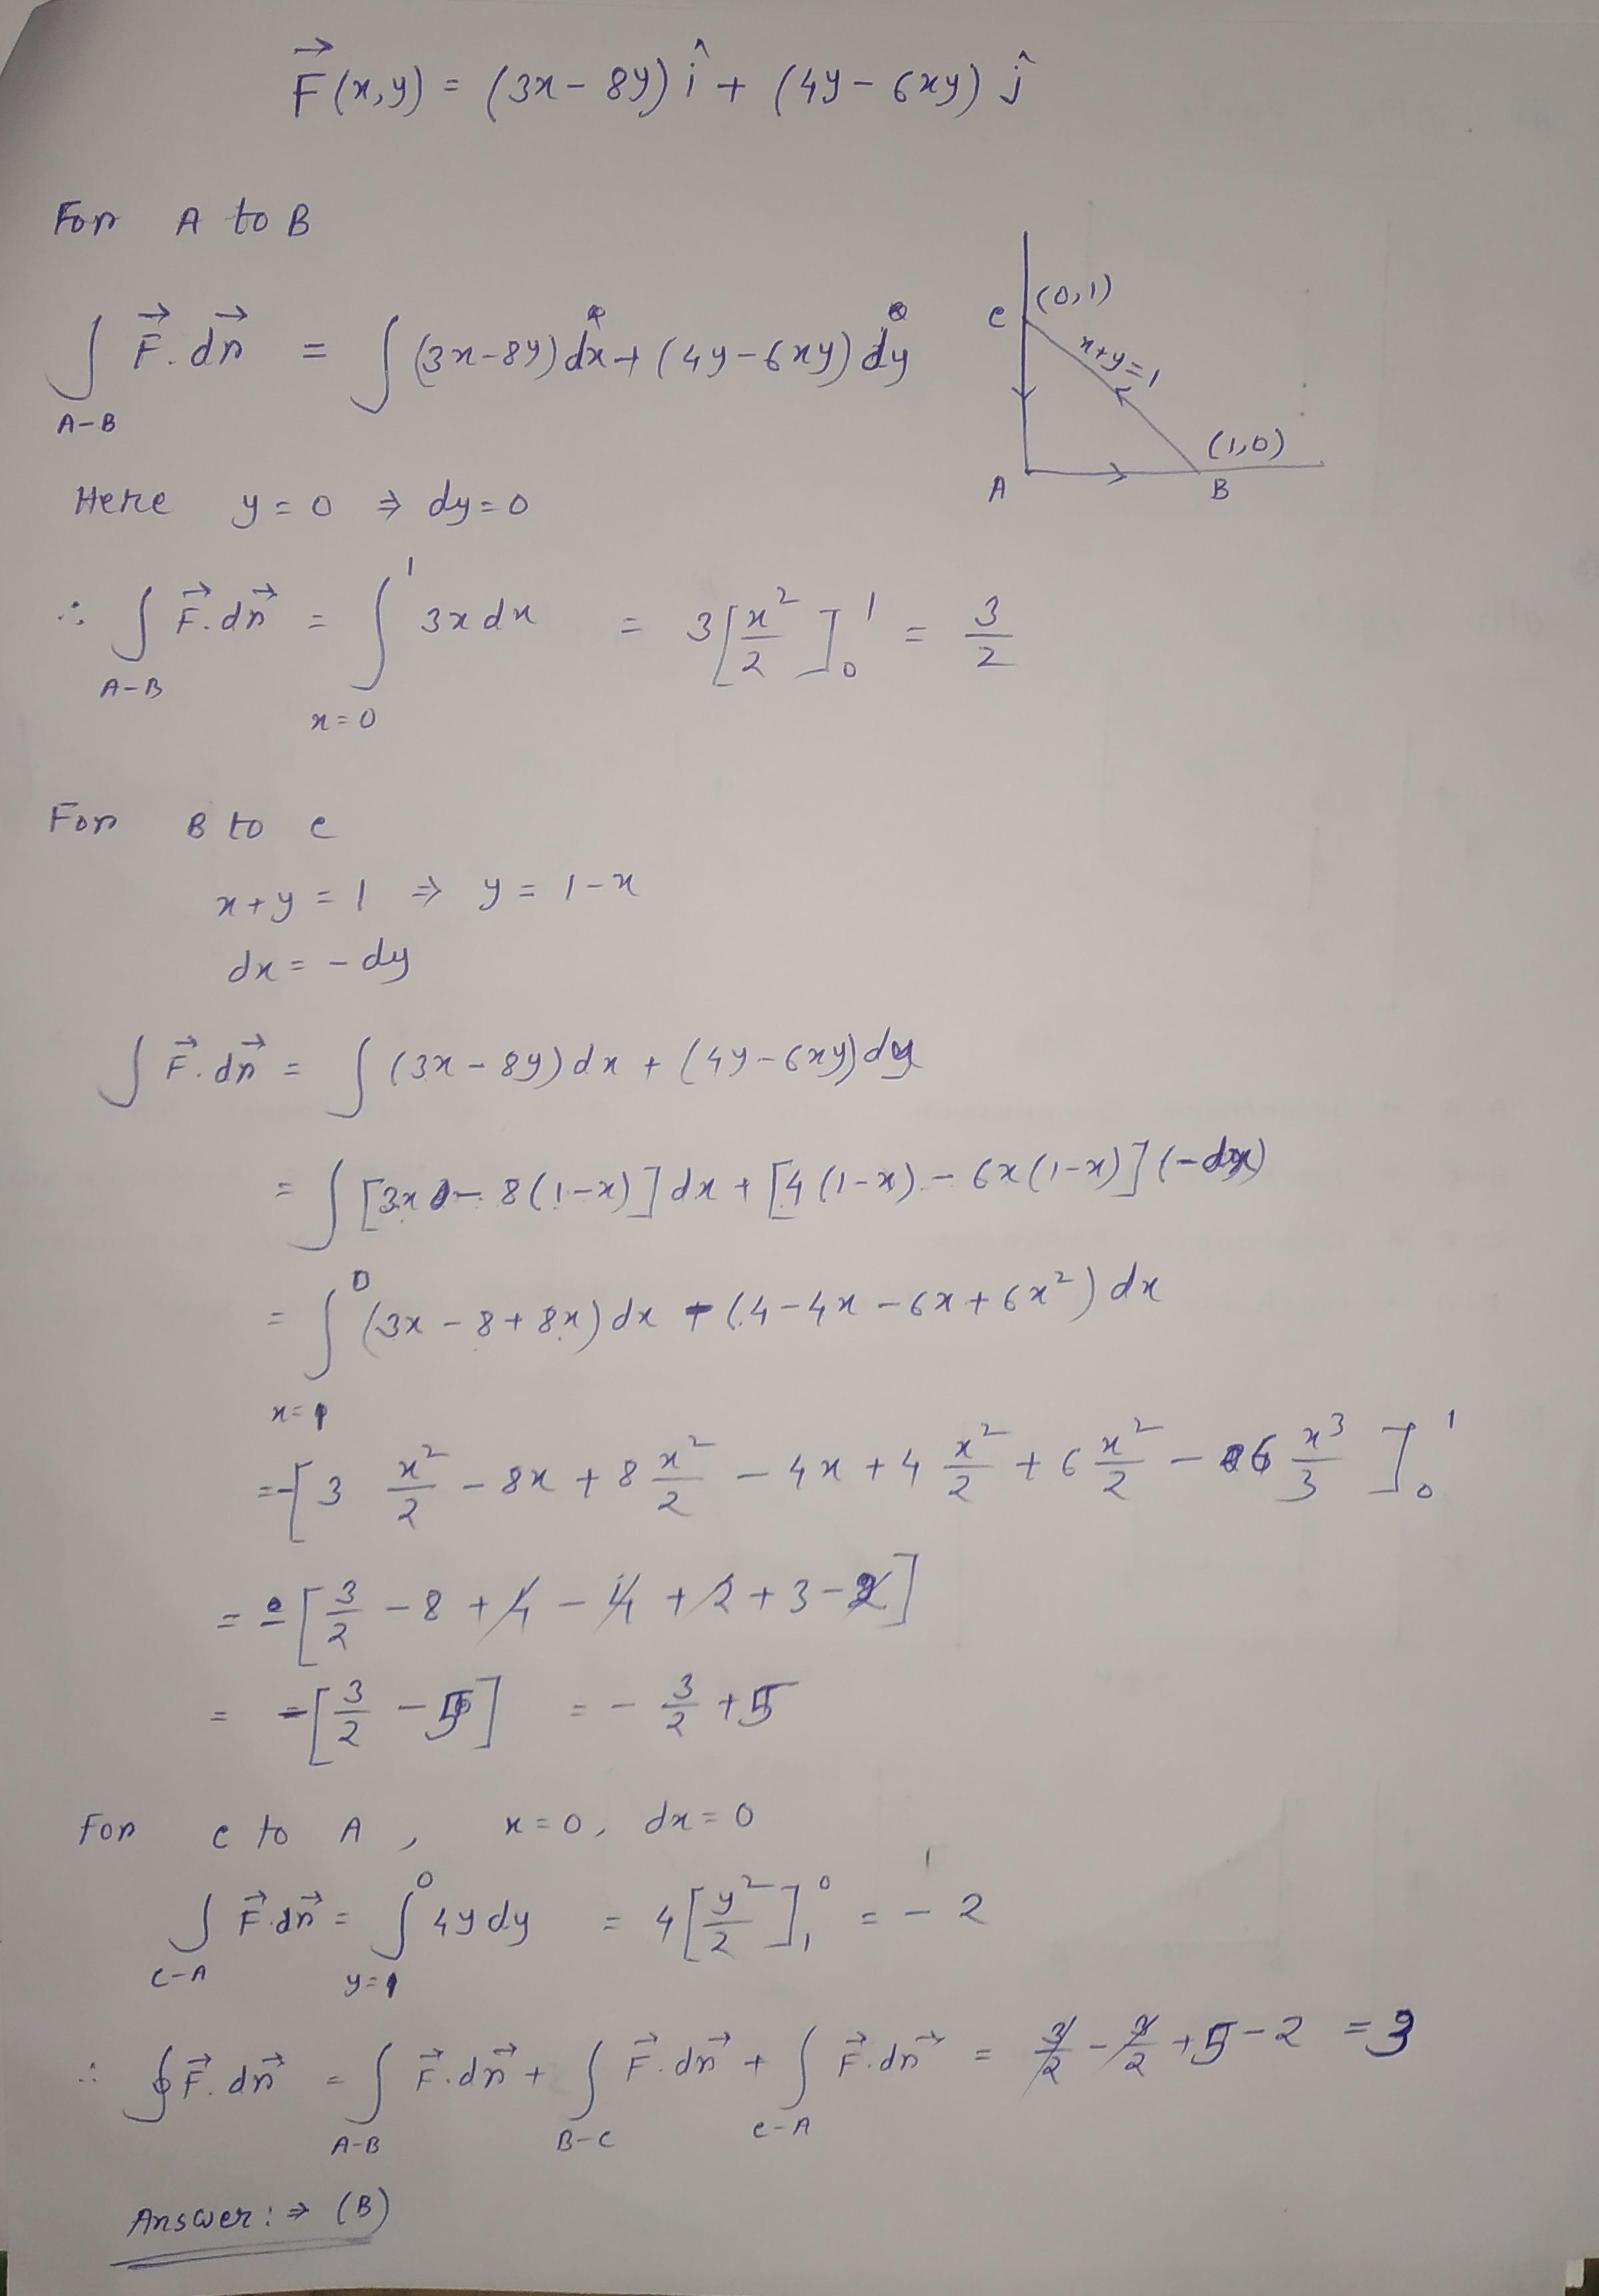 F⃗(x,y) = (3x - 8y) î + (4y - 6xy) ĵ
For A to B
∫_{A-B} F⃗.dr⃗ = ∫ (3x-8y) dx + (4y-6xy) dy
C (0,1)
x+y=1
(1,0)
A B
Here y=0 ⇒ dy=0
∴ ∫_{A-B} F⃗.dr⃗ = ∫_{x=0}^{1} 3x dx = 3[x²/2]₀¹ = 3/2
For B to C
x+y = 1 ⇒ y = 1-x
dx = - dy
∫ F⃗.dr⃗ = ∫ (3x - 8y) dx + (4y-6xy) dy
= ∫ [3x - 8(1-x)] dx + [4(1-x) - 6x(1-x)] (-dx)
= ∫_{x=1}^{0} (3x - 8 + 8x) dx - (4-4x-6x+6x²) dx
= -[3 x²/2 - 8x + 8 x²/2 - 4x + 4 x²/2 + 6 x²/2 - 6 x³/3]₀¹
= -[3/2 - 8 + 4 - 4 + 2 + 3 - 2]
= -[3/2 - 5] = - 3/2 + 5
For C to A, x=0, dx=0
∫_{C-A} F⃗.dr⃗ = ∫_{y=1}^{0} 4y dy = 4[y²/2]₁⁰ = - 2
∴ ∮F⃗.dr⃗ = ∫_{A-B} F⃗.dr⃗ + ∫_{B-C} F⃗.dr⃗ + ∫_{C-A} F⃗.dr⃗ = 3/2 - 3/2 + 5 - 2 = 3
Answer: ⇒ (B)